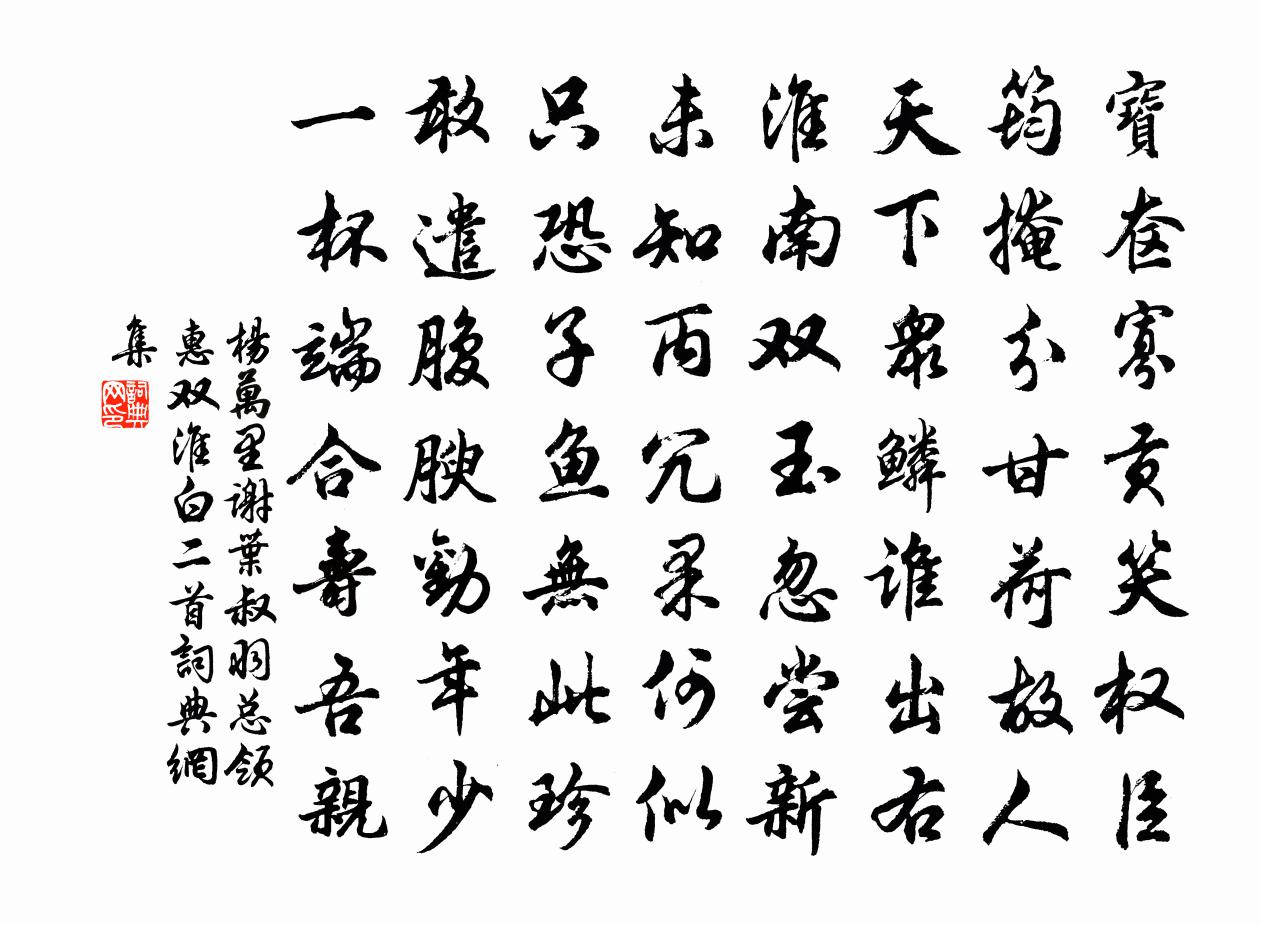 寶奁寡贡笑权臣
筠掩分甘荷故人
天下眾鳞谁出右
淮南双玉忽尝新
未知丙穴果何似
只恐子鱼無此珍
敢遣腹腴勸年少
一杯端合壽吾親
楊萬里谢葉叔羽总领
惠双淮白二首詞典網
集
詞典网印